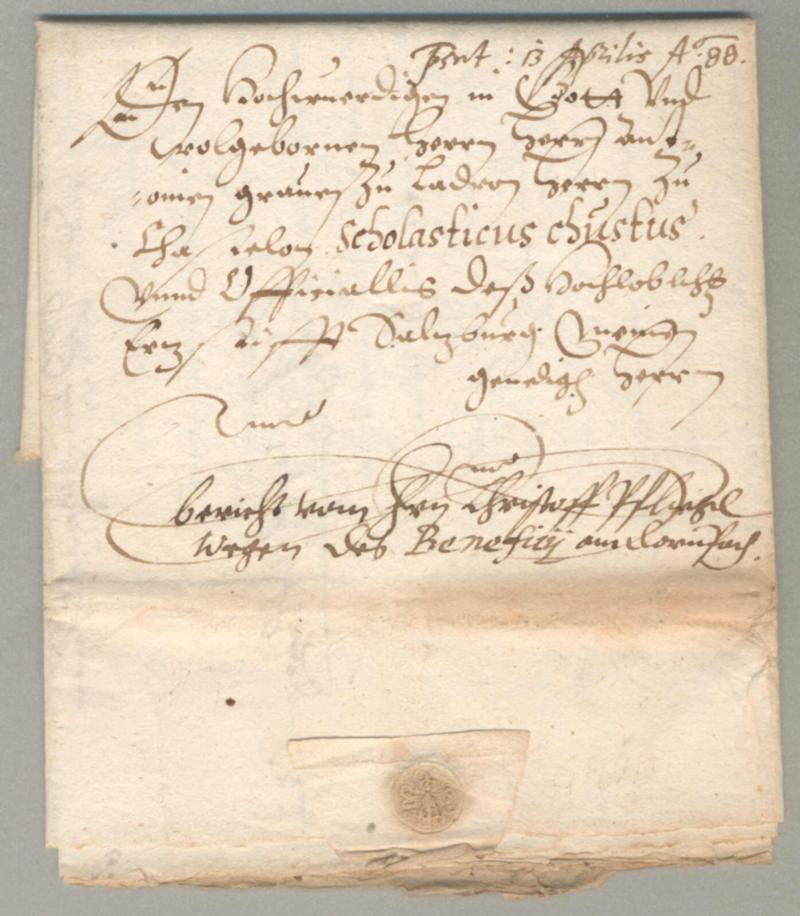 Prnt : 13 Aprilis A° 88.
Dem Hochwuerdigen in Gott Vnd
wolgebornen Herrn Herrn Ant-
-onien grauen zu Ladron Herrn zu
scholasticus chustus
Vnnd Officiallis deß Hochloblichen
Erzstifft Salzburg Meinem
genedigen Herrn
bericht vom Hrn Christoff
wegen des Beneficij am